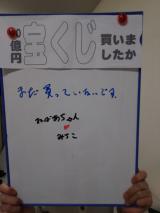 10億円
宝くじ
買いましたか
まだ買っていないです。
おばあちゃん
みちこ